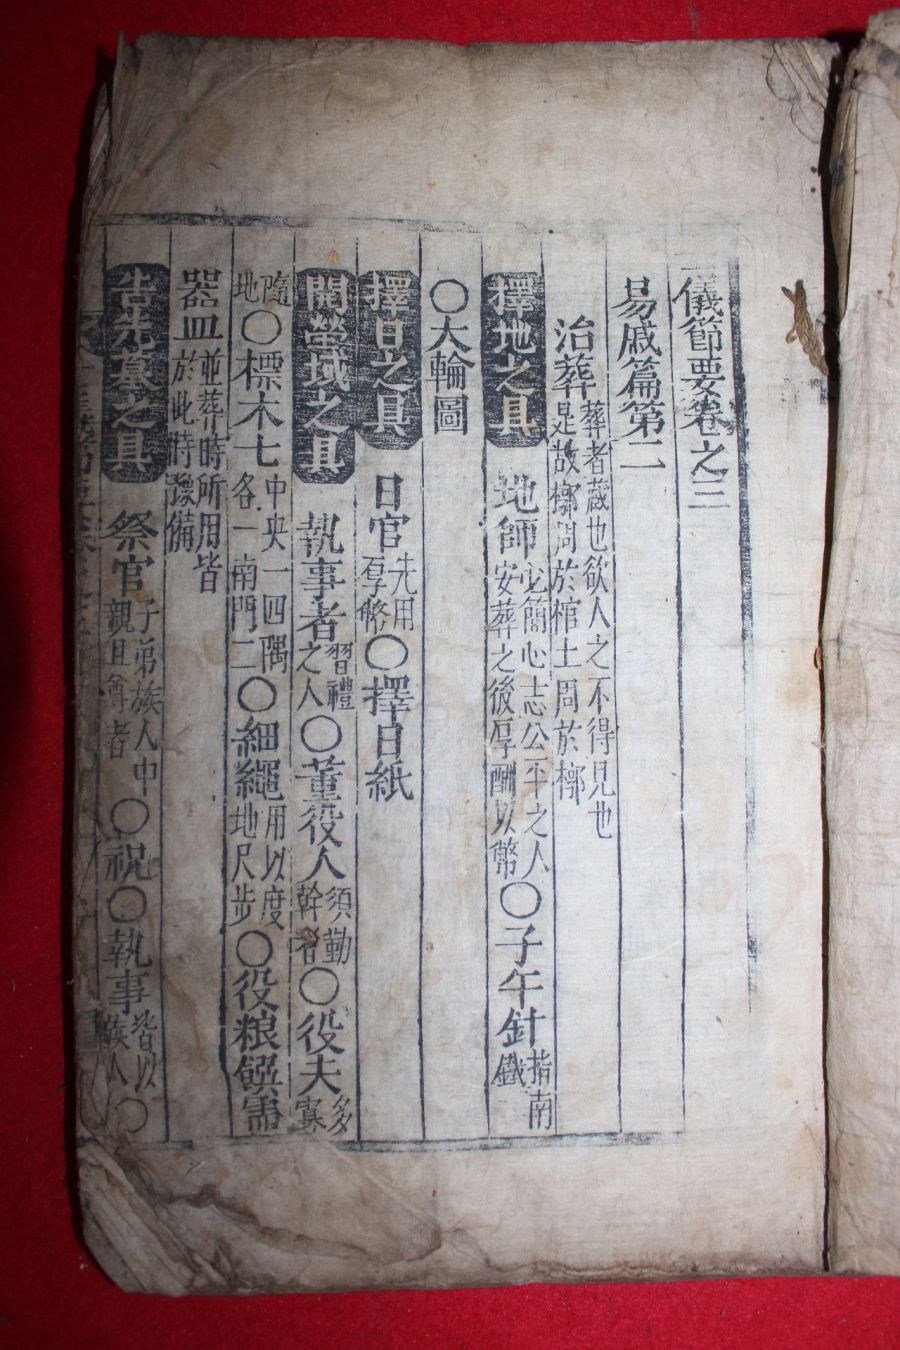 儀節要卷之三
易戚篇第二
治葬 葬者藏也欲人之不得見也
是故槨周於棺土周於槨
擇地之具 地師 必簡心志公平之人
安葬之後厚酬以幣 ○子午針 指南
鐵
○大輪圖
擇日之具 日官 先用
厚幣 ○擇日紙
開塋域之具 執事者 習禮
之人 ○董役人 須勤
幹者 ○役夫 多
寡
隨
地 ○標木七 中央一四隅
各一南門二 ○細繩 用以度
地尺步 ○役粮饌需
器皿 並葬時所用皆
於此時豫備
告先墓之具 祭官 子弟族人中
親且尊者 ○祝○執事 皆以
族人 ○